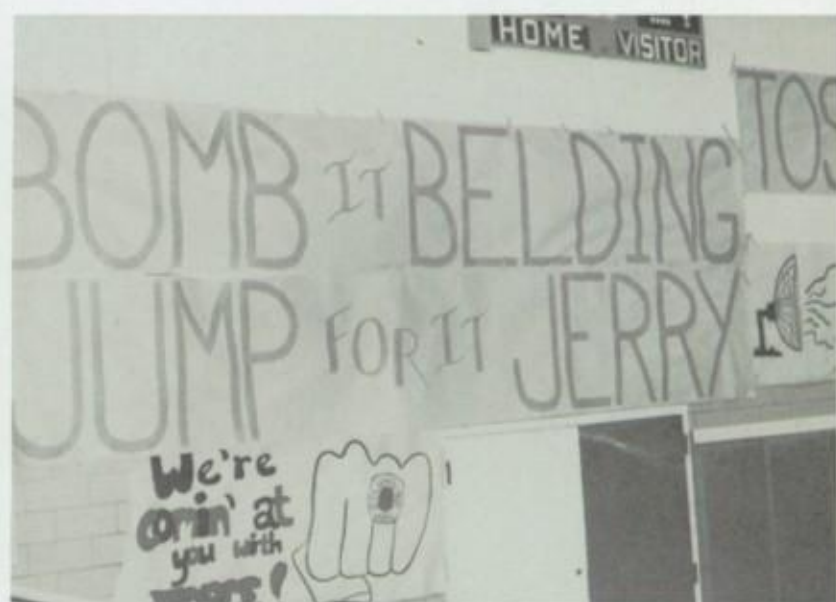 HOME VISITOR
BOMB IT BELDING
TOS
JUMP FOR IT JERRY
We're
comin' at
you with